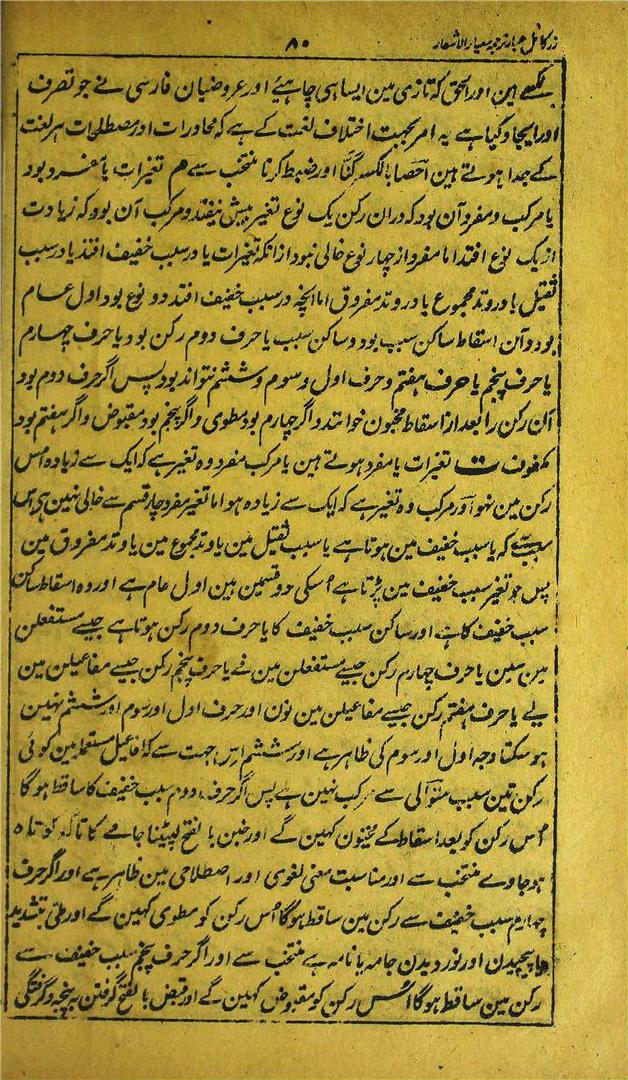 زر کامل عیار ترجمہ معیار الاشعار ۸۰
لکھے ہین اور الحق کہ تازی مین ایسا ہی چاہیئے اور عروضیان فارسی نے جو تصرف
اور ایجاد کیا ہے یہ امر بجہت اختلاف لغت کے ہے کہ محاورات اور مصطلحات ہر لغت
کے جدا ہوتے ہین احصا بالکسر گننا اور ضبط کرنا منتخب سے م تغیرات یا مفرد بود
یا مرکب و مفرد آن بود کہ در ان رکن یک نوع تغیر بیش نیفتد و مرکب آن بود کہ زیادت
از یک نوع افتد اما مفرد از چہار نوع خالی نبود از انکہ تغیرات یا در سبب خفیف افتد یا در سبب
ثقیل یا در وتد مجموع یا در وتد مفروق اما انچہ در سبب خفیف افتد دو نوع بود اول عام
بود و آن اسقاط ساکن سبب بود و ساکن سبب یا حرف دوم رکن بود یا حرف چہارم
یا حرف پنجم یا حرف ہفتم و حرف اول و سوم و ششم نتواند بود پس اگر حرف دوم بود
آن رکن را بعد از اسقاط مخبون خوانند و اگر چہارم بود مطوی و اگر پنجم بود مقبوض و اگر ہفتم بود
مکفوف ت تغیرات یا مفرد ہوتے ہین یا مرکب مفرد وہ تغیر ہے کہ ایک سے زیادہ اُس
رکن مین نہو اور مرکب وہ تغیر ہے کہ ایک سے زیادہ ہو اما تغیر مفرد چار قسم سے خالی نہین ہی اس
سبب سے کہ یا سبب خفیف مین ہوتا ہے یا سبب ثقیل مین یا وتد مجموع مین یا وتد مفروق مین
پس جو تغیر سبب خفیف مین پڑتا ہے اُسکی دو قسمین ہین اول عام ہے اور وہ اسقاط ساکن
سبب خفیف کا ہے اور ساکن سبب خفیف کا یا حرف دوم رکن ہوتا ہے جیسے مستفعلن
مین سین یا حرف چہارم رکن جیسے مستفعلن مین فے یا حرف پنجم رکن جیسے مفاعیلن مین
یے یا حرف ہفتم رکن جیسے مفاعیلن مین نون اور حرف اول اور سوم اور ششم نہین
ہو سکتا وجہ اول اور سوم کی ظاہر ہے اور ششم اس جہت سے کہ افاعیل مستعملہ مین کوئی
رکن تین سبب متوالی سے مرکب نہین ہے پس اگر حرف دوم سبب خفیف کا ساقط ہو گا
اُس رکن کو بعد اسقاط کے مخبون کہین گے اور خبن بالفتح لپیٹنا جامے کا تاکہ کوتاہ
ہو جاوے منتخب سے اور مناسبت معنی لغوی اور اصطلاحی مین ظاہر ہے اور اگر حرف
چہارم سبب خفیف سے رکن مین ساقط ہو گا اُس رکن کو مطوی کہین گے اور طی بتشدید
یا پیچیدن اور نوردیدن جامہ یا نامہ ہے منتخب سے اور اگر حرف پنجم سبب خفیف سے
رکن مین ساقط ہو گا اُس رکن کو مقبوض کہین گے اور قبض بالفتح گرفتن بہ پنجہ و گرفتگی